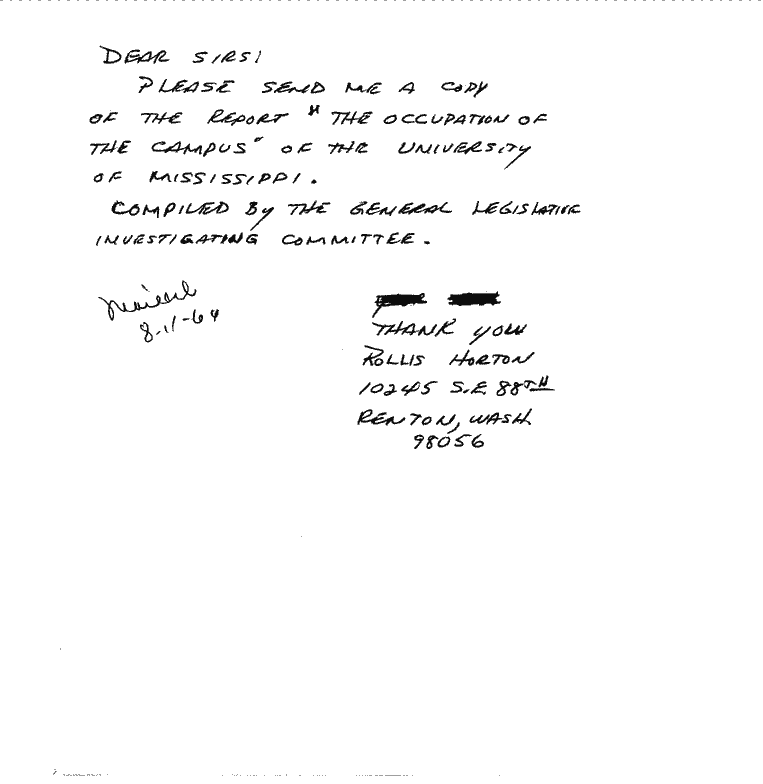 DEAR SIRS!
PLEASE SEND ME A COPY
OF THE REPORT "THE OCCUPATION OF
THE CAMPUS" OF THE UNIVERSITY
OF MISSISSIPPI.
COMPILED BY THE GENERAL LEGISLATIVE
INVESTIGATING COMMITTEE.
Mailed
8-11-64
THANK YOU
ROLLIS HORTON
10245 S.E. 88TH
RENTON, WASH
98056